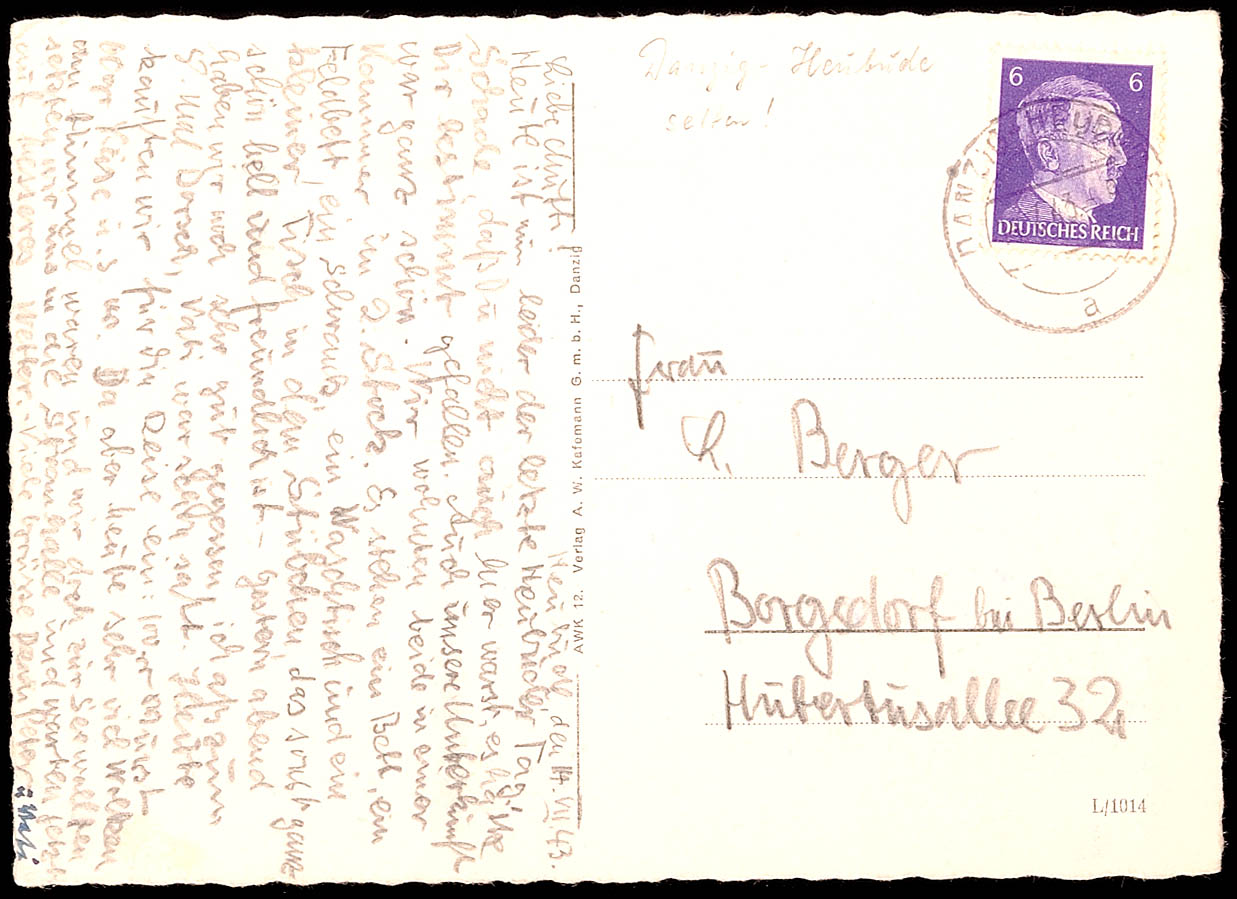 Heubude, den 14. VII. 43.
Liebe Mutti!
Heute ist nun leider der letzte Heubuder Tag.
Schade, daß Du nicht auch hier warst, es hätte
Dir bestimmt gefallen. Auch unsere Unterkunft
war ganz schön. Wir wohnten beide in einer
Kammer im 2. Stock. Es stehen ein Bett, ein
Feldbett, ein Schrank, ein Waschtisch und ein
kleiner Tisch in dem Stübchen, das sonst ganz
schön hell und freundlich ist. Gestern abend
haben wir noch sehr gut gegessen, ich aß zum
5. Mal Dorsch, Vati war sehr satt.
kauften wir für die Reise ein:
Käse u.s.w. Da aber heute sehr viel Wolken
am Himmel waren und wir doch zur See wollten
setzten wir uns in die Strandhalle und warten jetzt
auf besseres Wetter. Viele Grüße Dein Peter
u Vati
Danzig - Heubude
selten!
6 6
DEUTSCHES REICH
DANZIG-HEUBUDE
a
Frau
Berger
Borgsdorf bei Berlin
Hubertusallee 32
AWK 12. Verlag A. W. Kafemann G. m. b. H., Danzig
L/1014